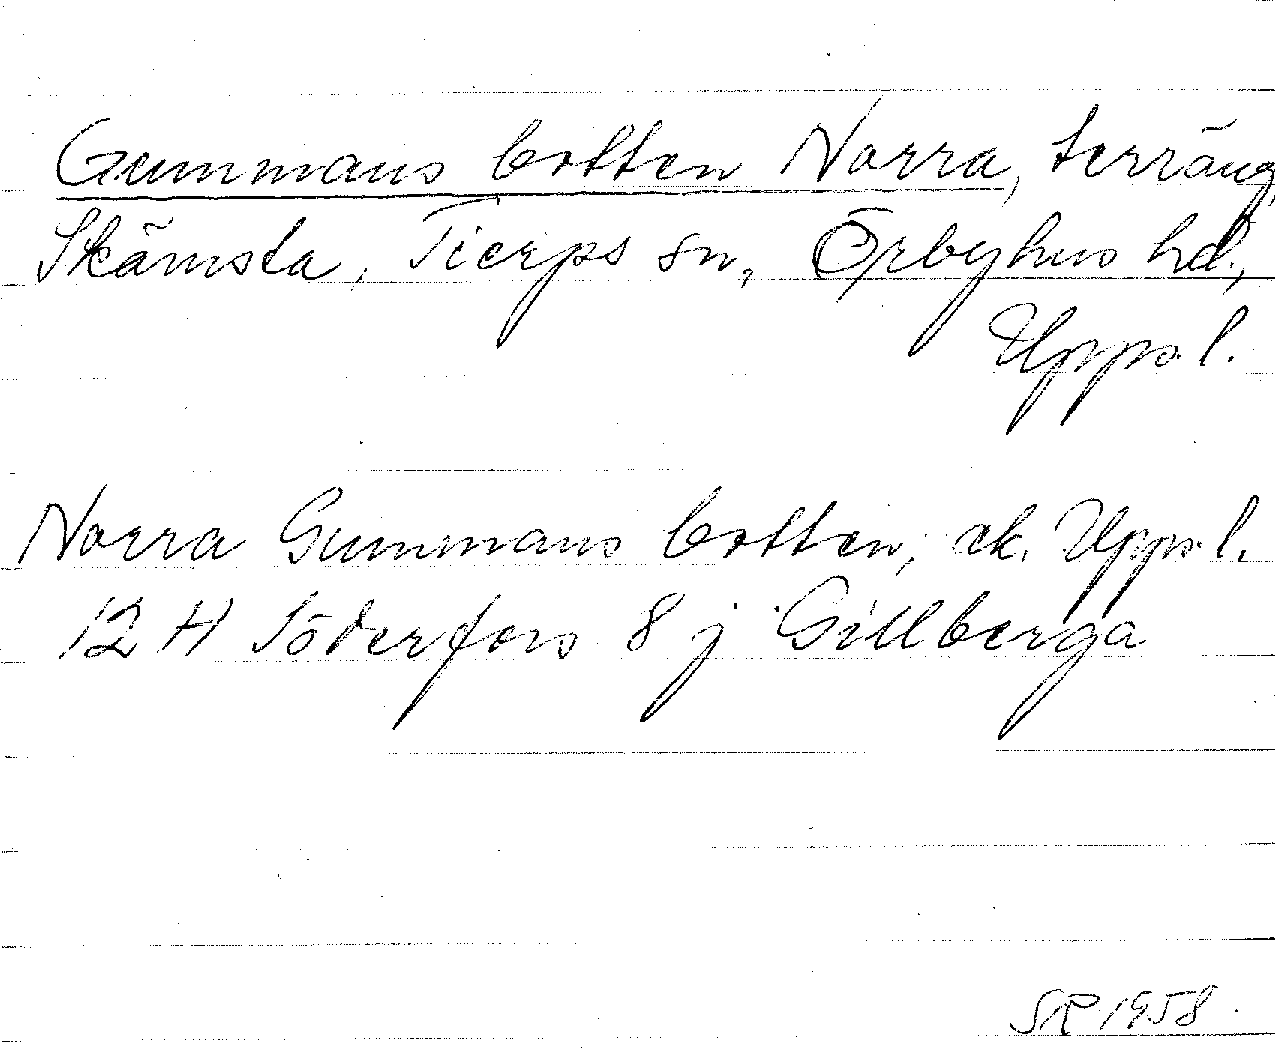 Gummans botten Norra, terräng,
Skämsta, Tierps sn, Örbyhus hd.,
Uppl.
Norra Gummans botten, ek. Uppl.
12 H Söderfors 8 j Gillberga
SR 1958.